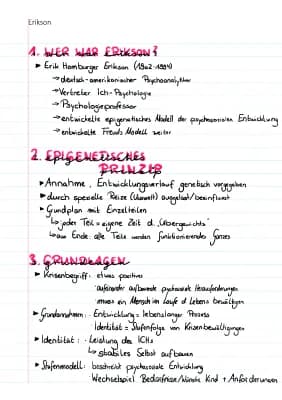 Erikson
1. WER WAR ERIKSON?
▸ Erik Homburger Erikson (1902-1994)
→ deutsch-amerikanischer Psychoanalytiker
→ Vertreter Ich-Psychologie
→ Psychologieprofessor
→ entwickelte epigenetisches Modell der psychosozialen Entwicklung
→ entwickelte Freuds Modell weiter
2. EPIGENETISCHES
PRINZIP
▸ Annahme: Entwicklungsverlauf genetisch vorgegeben
▸ durch spezielle Reize (Umwelt) ausgelöst/beeinflusst
▸ Grundplan mit Einzelteilen
↳ jeder Teil = eigene Zeit d. „Übergewichts"
↳ am Ende: alle Teile werden funktionierendes Ganzes
3. GRUNDLAGEN
▸ Krisenbegriff: etwas positives
aufeinander aufbauende psychosoziale Herausforderungen
muss ein Mensch im Laufe d. Lebens bewältigen
▸ Grundannahmen: Entwicklung = lebenslanger Prozess
Identität = Stufenfolge von Krisenbewältigungen
▸ Identität: Leistung des ICHs
↳ stabiles Selbst aufbauen
▸ Stufenmodell: beschreibt psychosoziale Entwicklung
Wechselspiel Bedürfnisse/Wünsche Kind + Anforderungen